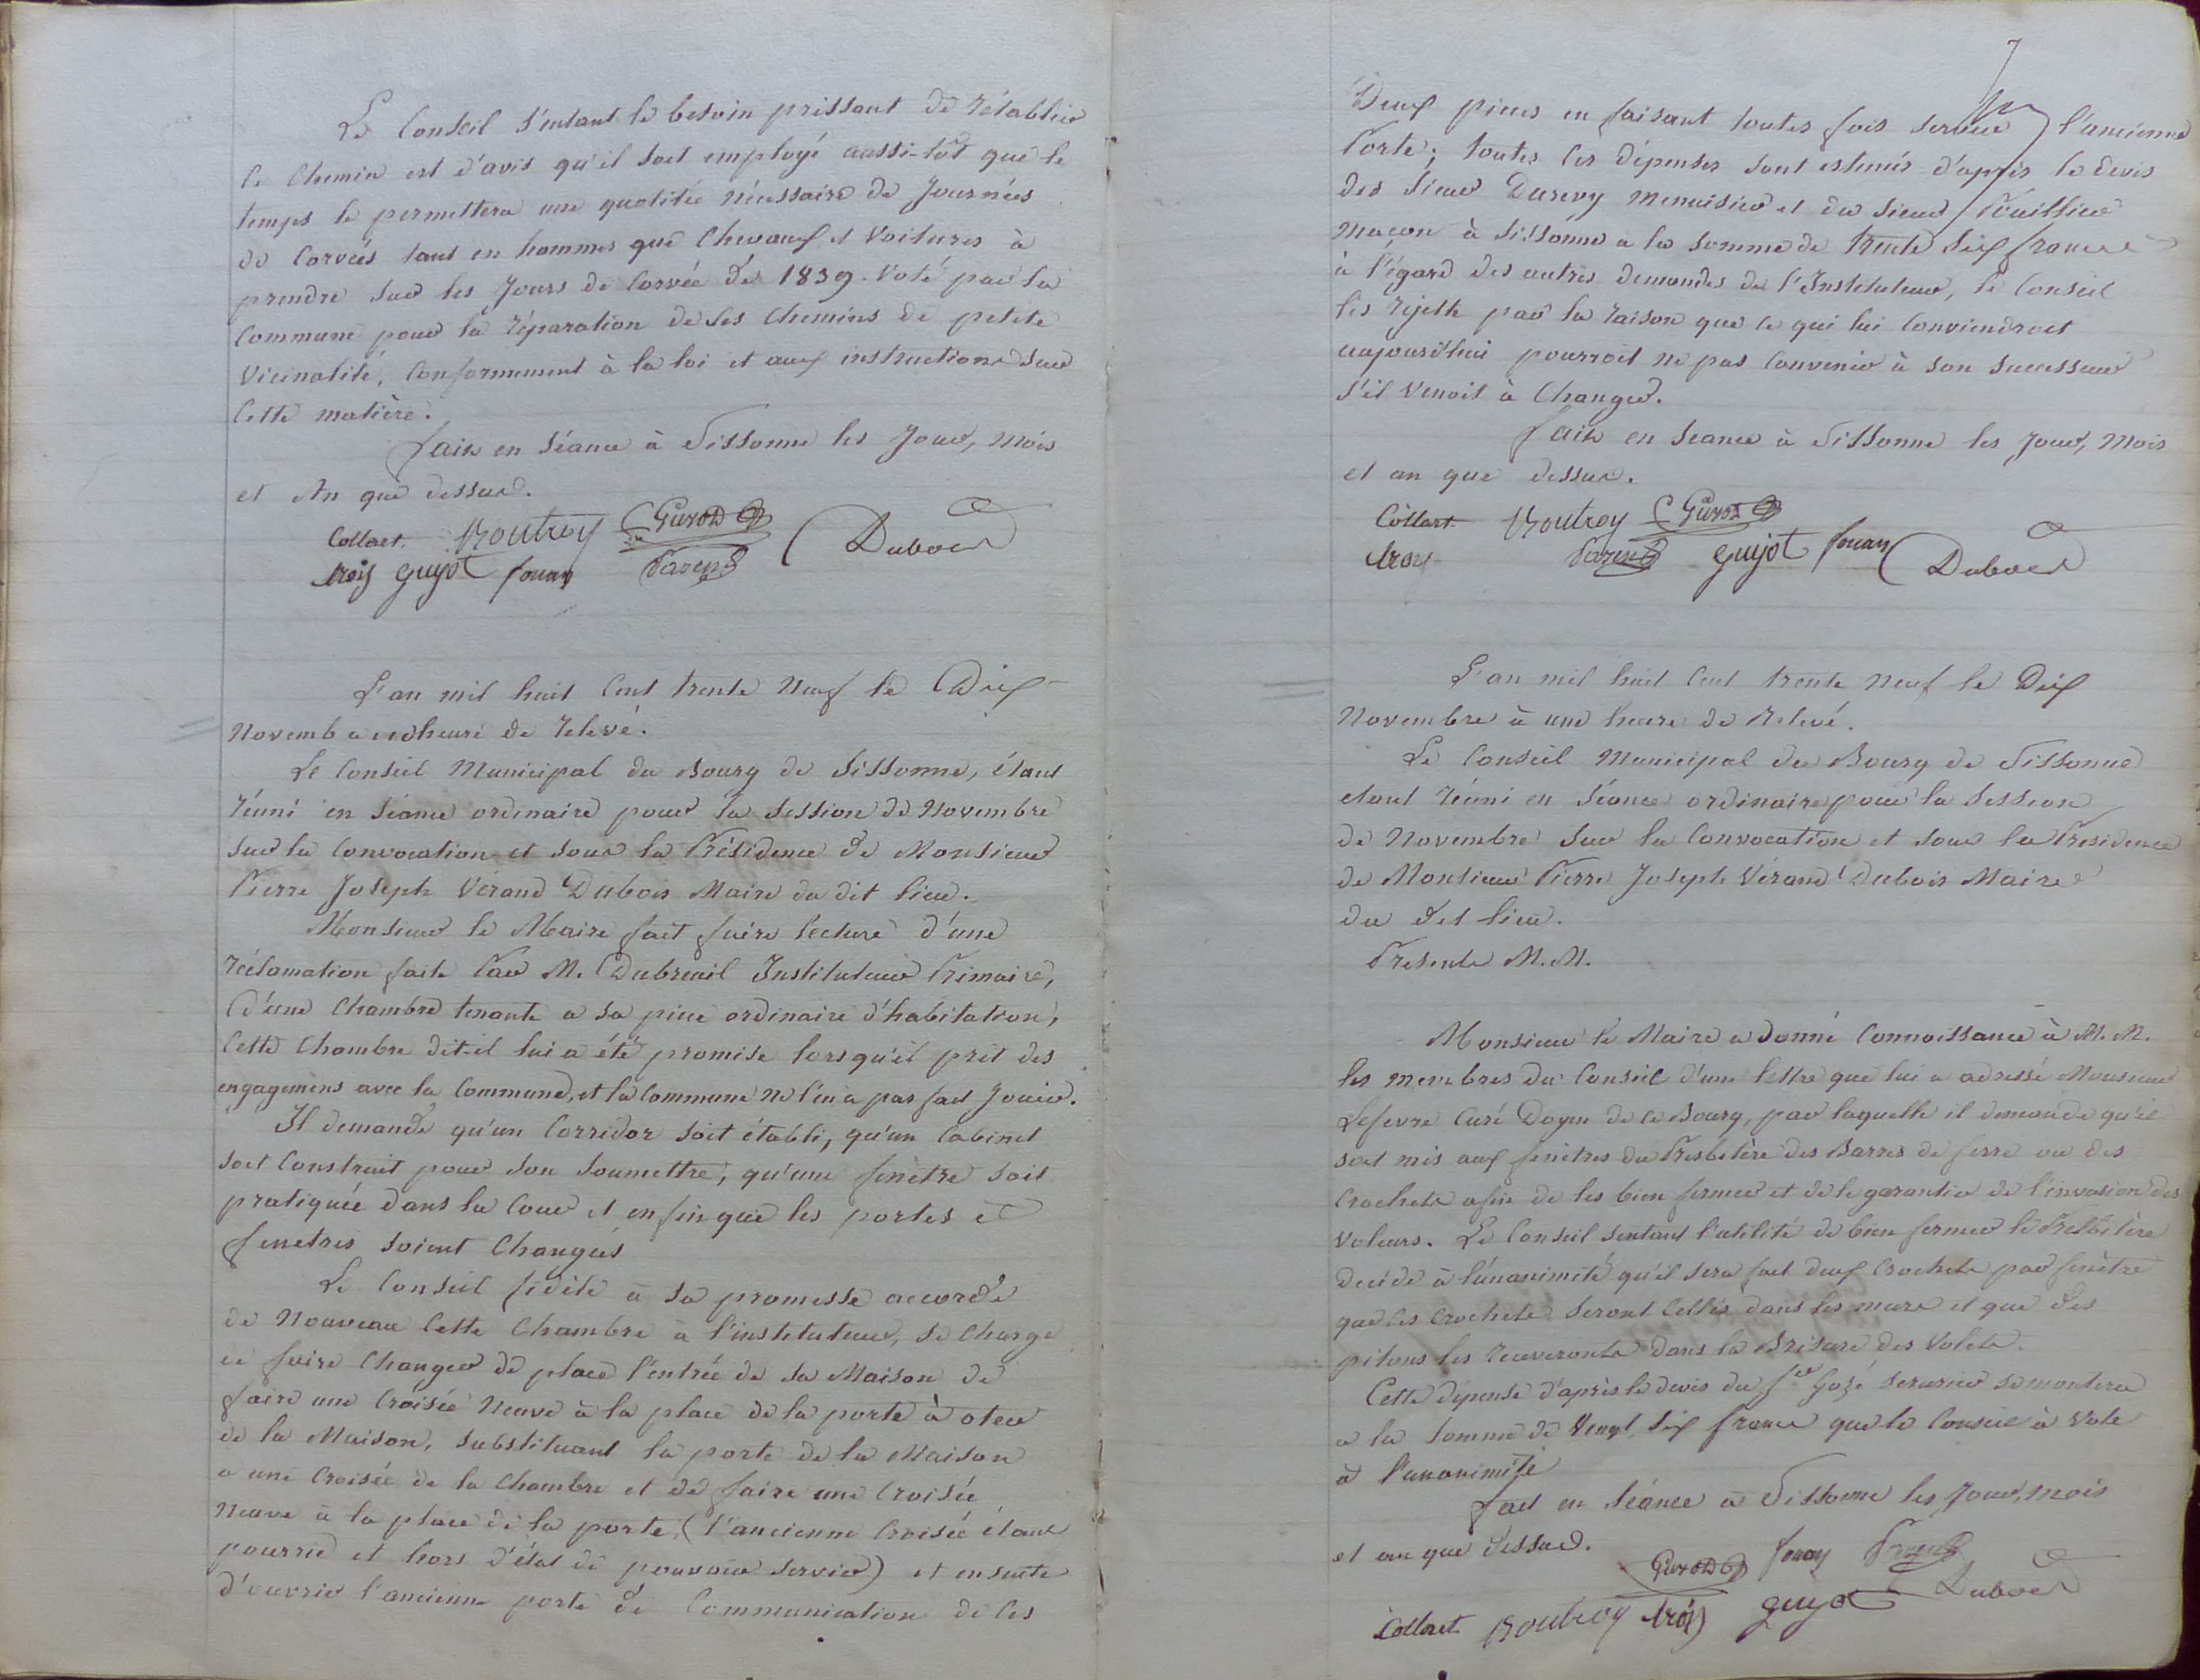 Le Conseil sentant le besoin pressant de rétablir
le Chemin est d'avis qu'il soit employé aussi-tôt que le
temps le permettera une quotitée nécessaire de Journées
de Corvées tant en hommes que Chevaux et Voitures à
prendre sur les Jours de Corvée de 1839. Voté par la
Commune pour la réparation de ses Chemins de petite
Vicinalité, Conformement à la loi et aux instructions sur
Cette matière.
fait en Séance à Sissonne les Jour, Mois
et An que dessus.
Collart Boutroy Guyot Dubois
Troij Guyot fouan Parent
L'an mil huit Cent trente Neuf le Dix
Novemb a heure de relevé.
Le Conseil Municipal du Bourg de Sissonne, étant
réuni en Séance ordinaire pour la Session de Novembre
sur la Convocation et sous la Présidence de Monsieur
Pierre Joseph Vérand Dubois Maire du dit lieu.
Monsieur le Maire fait faire lecture d'une
réclamation faite Par M. Dubreuil Instituteur Primaire,
d'une Chambre tenante a sa piece ordinaire d'habitation,
Cette Chambre dit-il lui a été promise lors qu'il prit des
engagemens avec la Commune, et la Commune ne l'en a pas fait Jouir.
Il demande qu'un Corridor soit établi, qu'un Cabinet
soit Construit pour son Soumettre, qu'une fenêtre soit
pratiquée dans la Cour et enfin que les portes et
fenetres soient Changées
Le Conseil fidèle à sa promesse accorde
de Nouveau Cette Chambre à l'instituteur, se Charge
de faire Changer de place l'entrée de sa Maison de
faire une Croisée Neuve à la place de la porte à oter
de la Maison, substituant la porte de la Maison
a une Croisée de la Chambre et de faire une Croisée
Neuve à la place de la porte, (l'ancienne Croisée étant
pourrie et hors d'état de pouvoir servir) et ensuite
d'ouvrir l'ancienne porte de Communication de Ces
7
Deux pieces en faisant toutes fois servir l'ancienne
Porte; toutes Ces dépenses sont estimés d'après le devis
des Sieur Durevy Menuisier et du Sieur
Maçon à Sissonne a la somme de trente Six francs
à l'égard des autres demandes de l'Instituteur, le Conseil
les rejette par la raison que ce qui lui Conviendroit
aujourd'hui pourroit ne pas Convenir à son Successeur
s'il Venoit à Changer.
fait en Seance à Sissonne les Jour, Mois
et an que dessus.
Collart Boutroy Guyot
Troij Parent Guyot fouan Dubois
L'an mil huit Cent trente Neuf le Dix
Novembre à une heure de Relevé.
Le Conseil Municipal du Bourg de Sissonne
etant réuni en Séance ordinaire pour la Session
de Novembre sur la Convocation et sous la Présidence
de Monsieur Pierre Joseph Vérand Dubois Maire
du dit lieu.
Presente M.M.
Monsieur le Maire a donné Connoissance à M.M.
les membres du Conseil d'une lettre que lui a adressé Monsieur
Lefevre Curé Doyen de ce Bourg, par laquelle il demande qu'il
soit mis aux fenêtres du Presbitère des Barres de ferre ou des
Crochets afin de les bien fermer et de le garantir de l'invasion des
Voleurs. Le Conseil sentant l'utilité de bien fermer le Presbitère
decide à l'unanimité qu'il sera fait deux Crochets par fenêtre
que Ces Crochets seront Cellés dans les murs et que des
pitons les receveronts dans la Brisure des Volets.
Cette dépense d'après le devis du Sr Gozé Serurier se montera
a la somme de Vingt Six francs que le Conseil à Voté
à l'unanimité
fait en Séance à Sissonne les Jour, Mois
et an que dessus.
Guyot fouan Parent
Collart Boutroy Troij Guyot Dubois